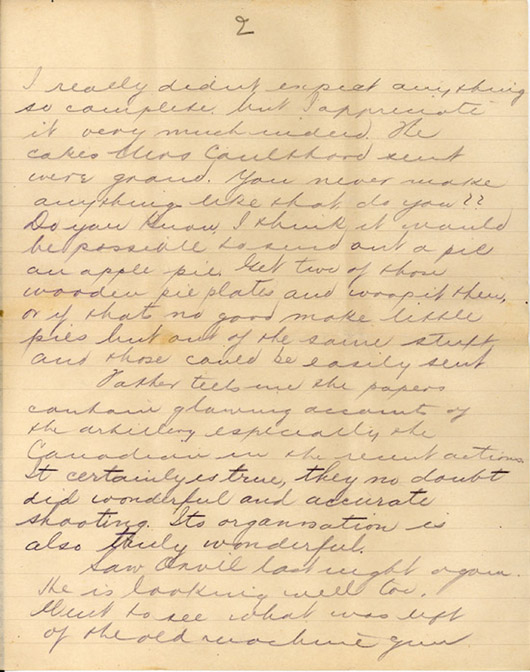 2
I really didnt expect anything
so complete, but I appreciate
it very much indeed. The
cakes Mrs Coulthard sent
were grand. You never make
anything like that do you??
Do you know, I think it would
be possible to send out a pie
an apple pie. Get two of those
wooden pie plates and wrap it then,
or if thats no good make little
pies but out of the same stuff
and those could be easily sent
Father tells me the papers
contain glowing accounts of
the artillery especially the
Canadian in the recent actions.
It certainly is true, they no doubt
did wonderful and accurate
shooting. Its organisation is
also truly wonderful.
Saw last night again.
He is looking well too.
Went to see what was left
of the old machine gun